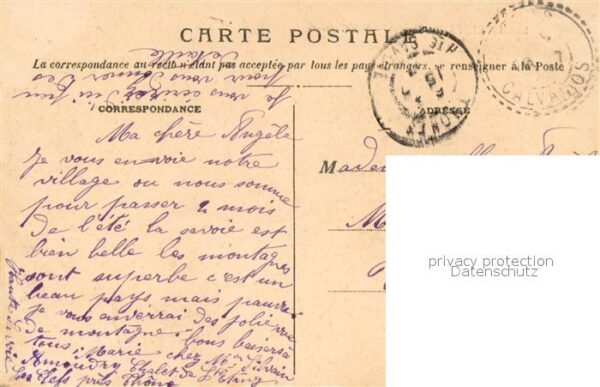 CARTE POSTALE
La correspondance au recto n'étant pas acceptée par tous les pays étrangers, se renseigner à la Poste
CORRESPONDANCE
ADRESSE
CALVADOS
Ma chère Angèle
Je vous envoie notre
village ou nous somme
pour passer 2 mois
de l'été la savoie est
bien belle les montagnes
sont superbe c'est un
beau pays mais pauvre
je vous enverrai des jolie vue
de montagne bons baisers a
tous Marie chez Mme Silvain
Amoudry Chalet de l'Etang
Les Clefs près Thône
Haute Savoie
Je vous écrirai
pour vous donner des
détails
M
privacy protection
Datenschutz